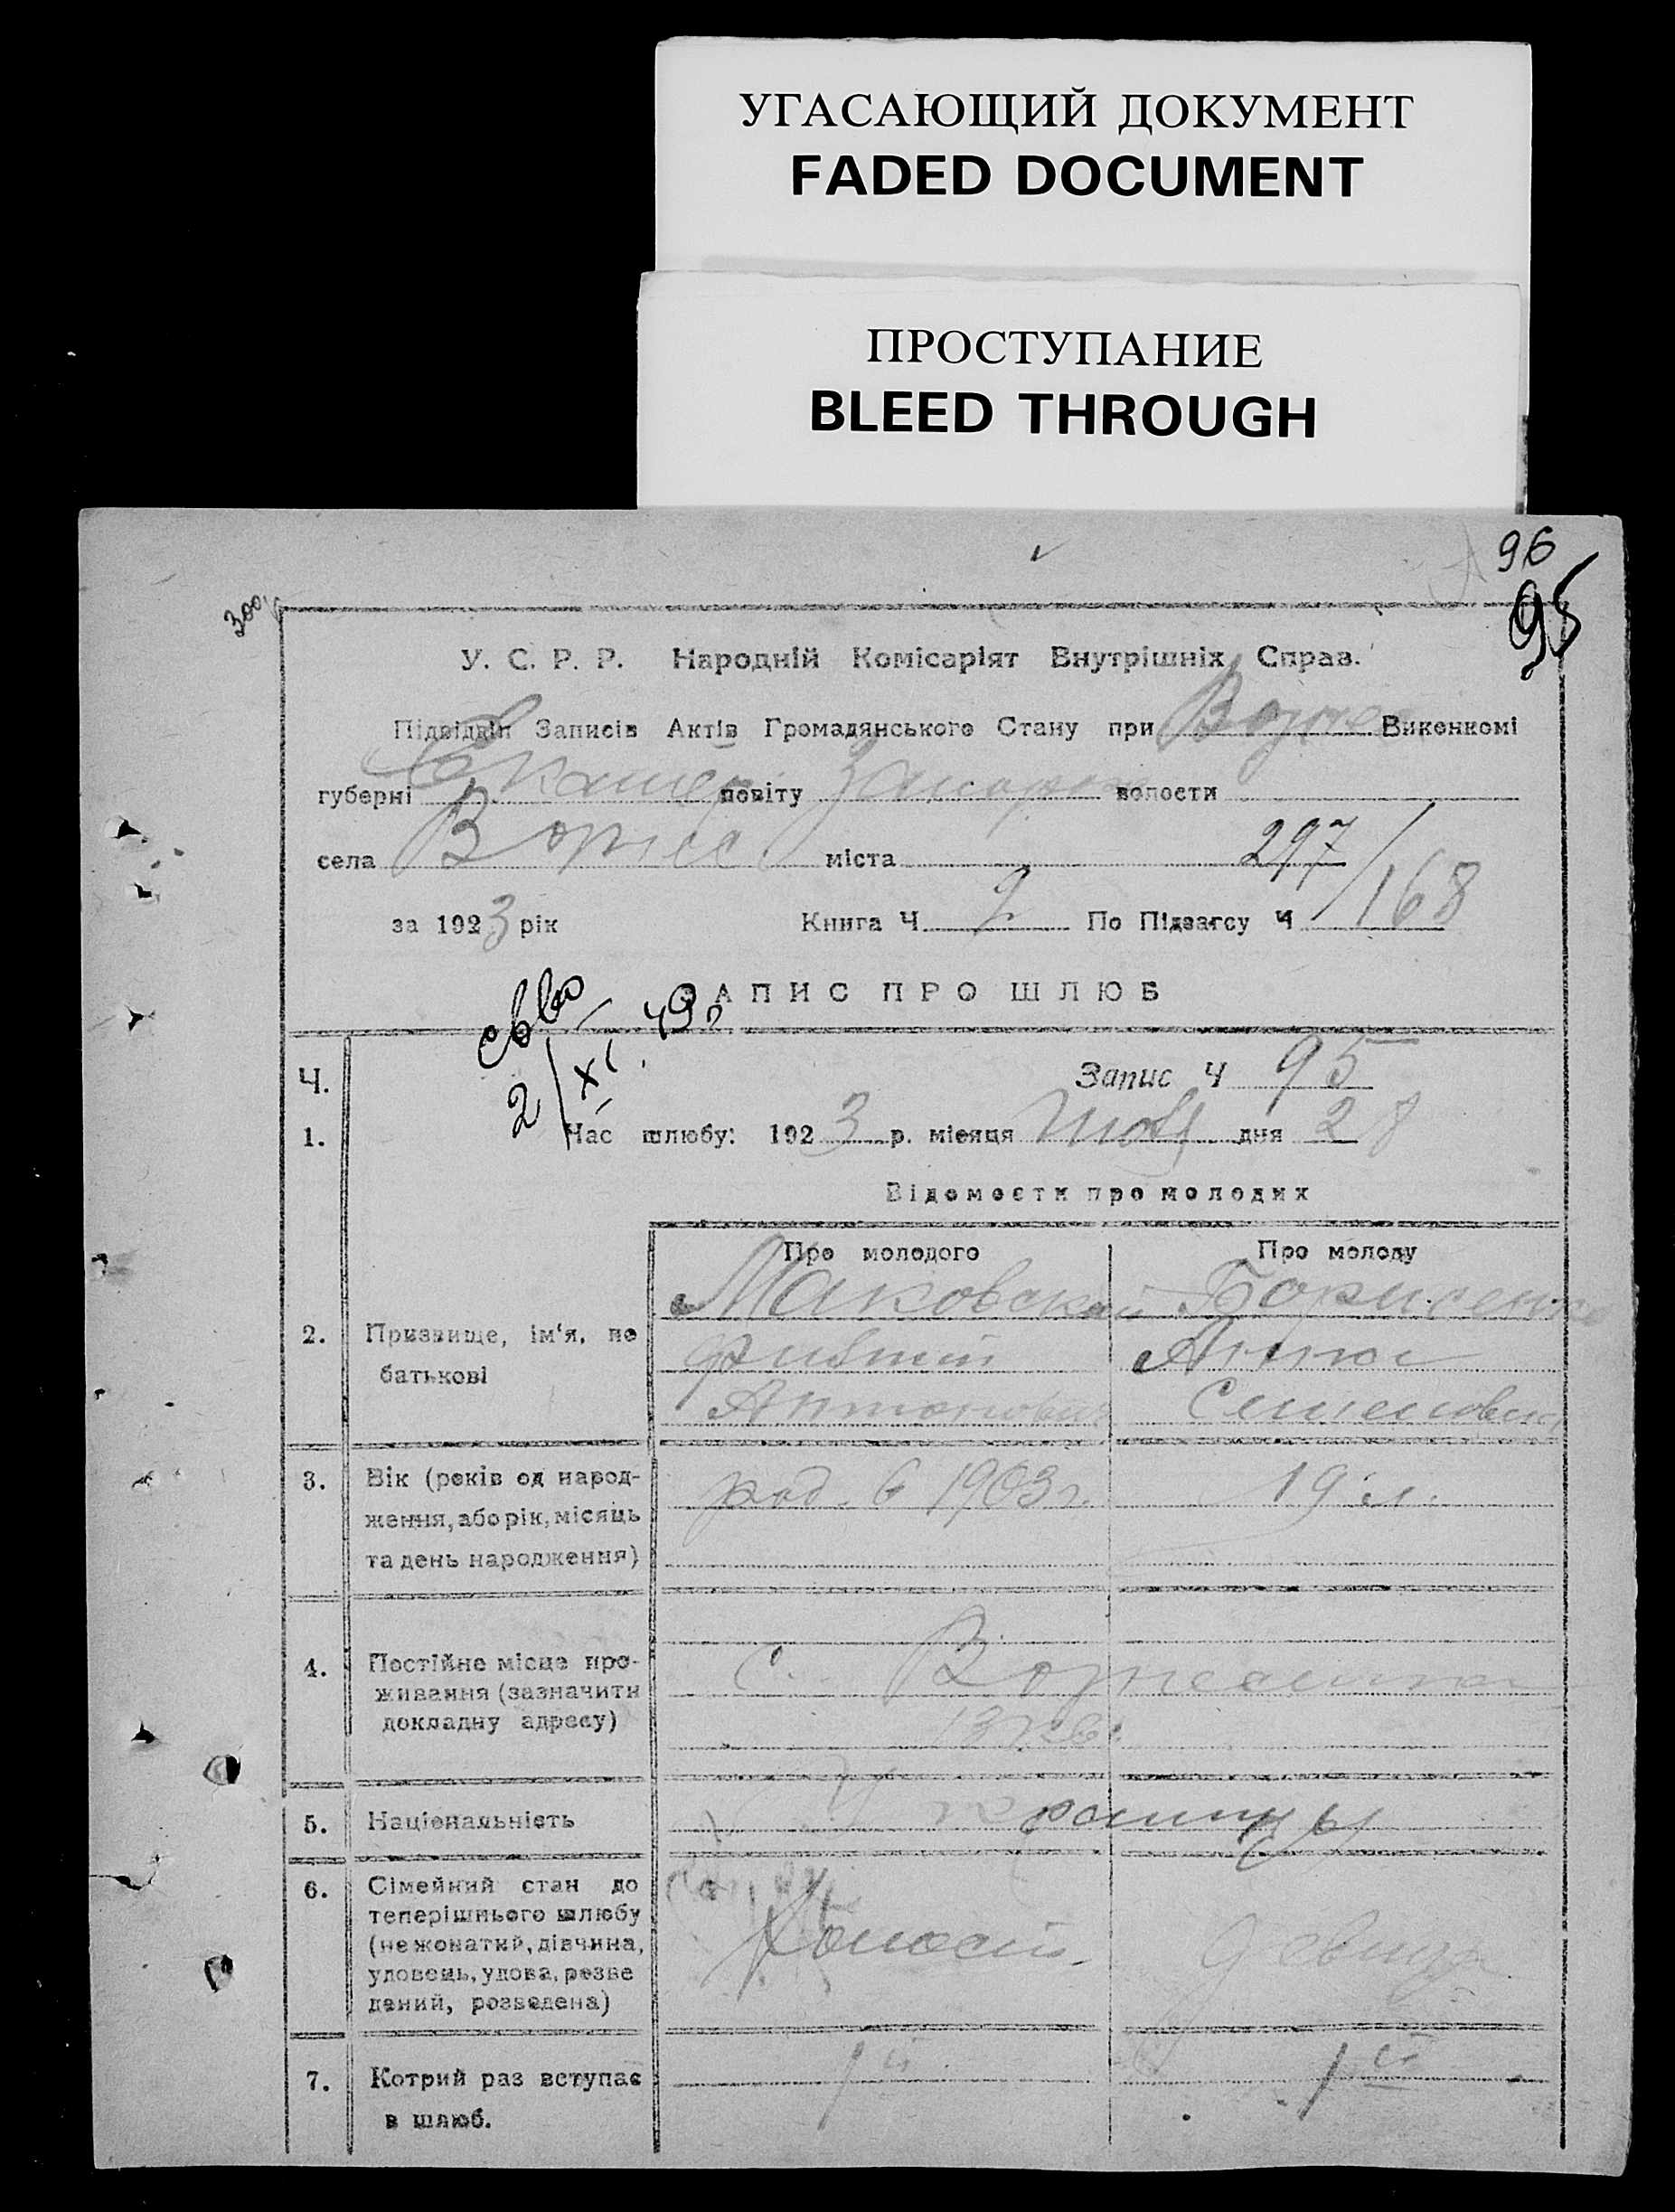 УГАСАЮЩИЙ ДОКУМЕНТ
FADED DOCUMENT
ПРОСТУПАНИЕ
BLEED THROUGH
96
95
300
У. С. Р. Р. Народній Комісаріят Внутрішніх Справ.
Підвідділ Записів Актів Громадянського Стану при Вознес Виконкомі
губерні Екатер повіту Запорож волости
села Вознес міста 297
за 1923 рік Книга Ч. 2 По Підзагсу Ч 168
ЗАПИС ПРО ШЛЮБ
2/XI 49
Ч. Запис Ч 95
1. Час шлюбу: 1923 р. місяця дня 28
Відомости про молодих
Про молодого Про молоду
Маковский Борисенко
2. Призвище, ім'я, по Анна
батькові Антонович Семеновна
3. Вік (років од народ- род. в 1903 г. 19 л.
ження, або рік, місяць
та день народження)
4. Постійне місце про- с. Вознесенка
живання (зазначити
докладну адресу) 13 кв.
5. Національність Украинцы
6. Сімейний стан до
теперішнього шлюбу
(не жонатий, дівчина, Холост девица
удовець, удова, розве
дений, розведена)
7. Котрий раз вступає 1й 1й
в шлюб.